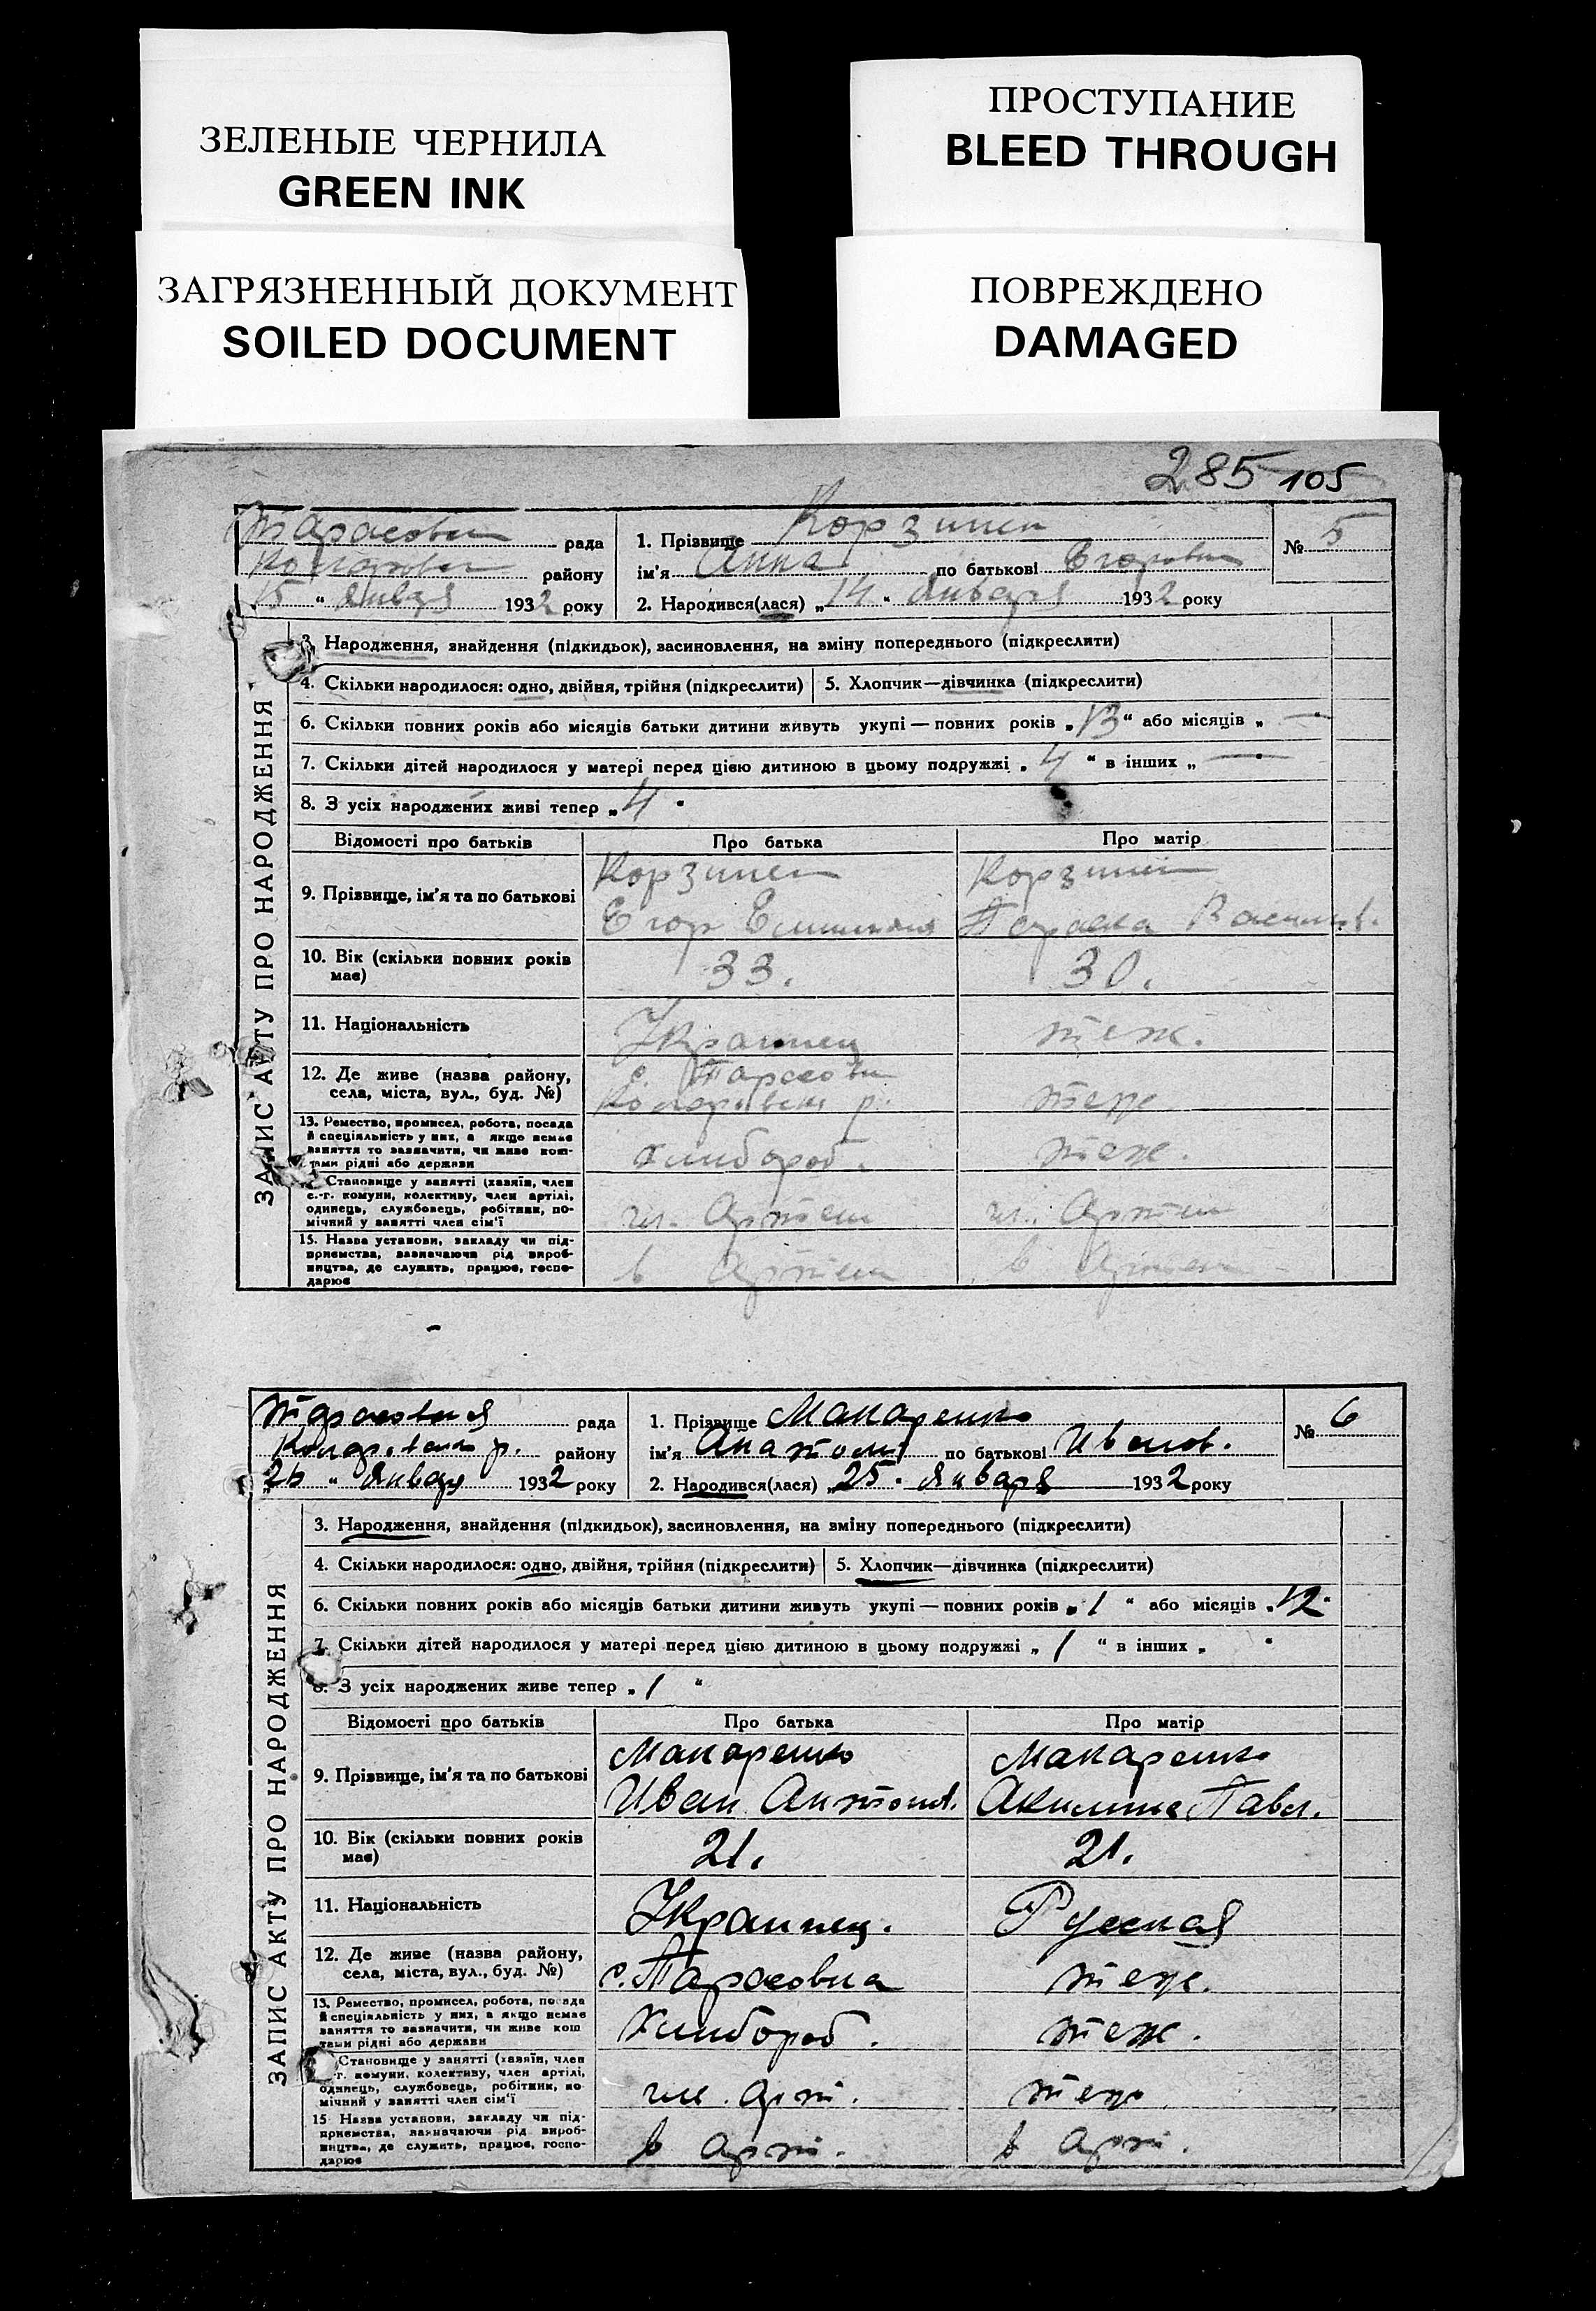 ЗЕЛЕНЫЕ ЧЕРНИЛА
GREEN INK
ПРОСТУПАНИЕ
BLEED THROUGH
ЗАГРЯЗНЕННЫЙ ДОКУМЕНТ
SOILED DOCUMENT
ПОВРЕЖДЕНО
DAMAGED
285 105
рада
району
15 " Января 1932 року
1. Прізвище
ім'я Анна по батькові
2. Народився(лася) „14 " Января 1932 року
№ 5
ЗАПИС АКТУ ПРО НАРОДЖЕННЯ
3. Народження, знайдення (підкидьок), засиновлення, на зміну попереднього (підкреслити)
4. Скільки народилося: одно, двійня, трійня (підкреслити)
5. Хлопчик—дівчинка (підкреслити)
6. Скільки повних років або місяців батьки дитини живуть укупі — повних років „13" або місяців „ — "
7. Скільки дітей народилося у матері перед цією дитиною в цьому подружжі „4 " в інших „ — "
8. З усіх народжених живі тепер „4 "
Відомості про батьків
Про батька
Про матір
9. Прізвище, ім'я та по батькові
Егор
10. Вік (скільки повних років має)
33.
30.
11. Національність
Украинец
теж.
12. Де живе (назва району,
села, міста, вул., буд. №)
теж
13. Ремество, промисел, робота, посада
й спеціяльність у них, а якщо немає
заняття то зазначити, чи живе кош-
тами рідні або держави
хлибороб.
теж.
Становище у занятті (хазяїн, член
с.-г. комуни, колективу, член артілі,
одинець, службовець, робітник, по-
мічний у занятті член сім'ї
чл. Артели
чл. Артели
15. Назва установи, закладу чи під-
приємства, зазначаючи рід вироб-
ництва, де служить, працює, госпо-
дарює
в Артели
в Артели
рада
району
26 " Января 1932 року
1. Прізвище Макаренко
ім'я Анатолий по батькові Иванов.
2. Народився(лася) „25 " Января 1932 року
№ 6
ЗАПИС АКТУ ПРО НАРОДЖЕННЯ
3. Народження, знайдення (підкидьок), засиновлення, на зміну попереднього (підкреслити)
4. Скільки народилося: одно, двійня, трійня (підкреслити)
5. Хлопчик—дівчинка (підкреслити)
6. Скільки повних років або місяців батьки дитини живуть укупі — повних років „1 " або місяців „12"
7. Скільки дітей народилося у матері перед цією дитиною в цьому подружжі „1 " в інших „ "
8. З усіх народжених живе тепер „1 "
Відомості про батьків
Про батька
Про матір
9. Прізвище, ім'я та по батькові
Макаренко
Иван Антонов.
Макаренко
Акилина Павл.
10. Вік (скільки повних років має)
21.
21.
11. Національність
Украинец.
Русская
12. Де живе (назва району,
села, міста, вул., буд. №)
с. Тарасовка
теж.
13. Ремество, промисел, робота, посада
й спеціяльність у них, а якщо немає
заняття то зазначити, чи живе кош
тами рідні або держави
Хлибороб.
теж.
Становище у занятті (хазяїн, член
с.-г. комуни, колективу, член артілі,
одинець, службовець, робітник, по-
мічний у занятті член сім'ї
чле. арт.
теж
15 Назва установи, закладу чи під-
приємства, зазначаючи рід вироб-
ництва, де служить, працює, госпо-
дарює
в арт.
в арт.